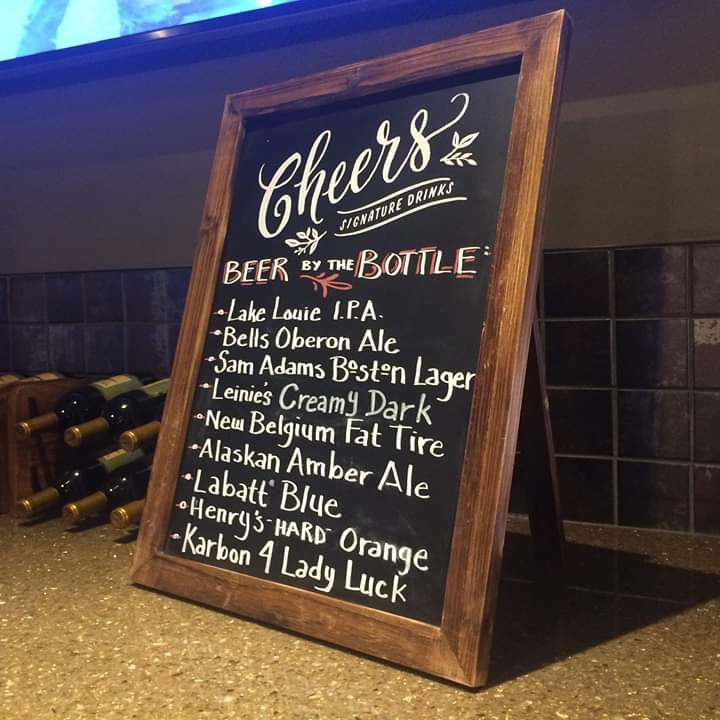 Cheers
SIGNATURE DRINKS
BEER BY THE BOTTLE:
Lake Louie I.P.A.
Bells Oberon Ale
Sam Adams Boston Lager
Leinie's Creamy Dark
New Belgium Fat Tire
Alaskan Amber Ale
Labatt Blue
Henry's-HARD-Orange
Karbon 4 Lady Luck